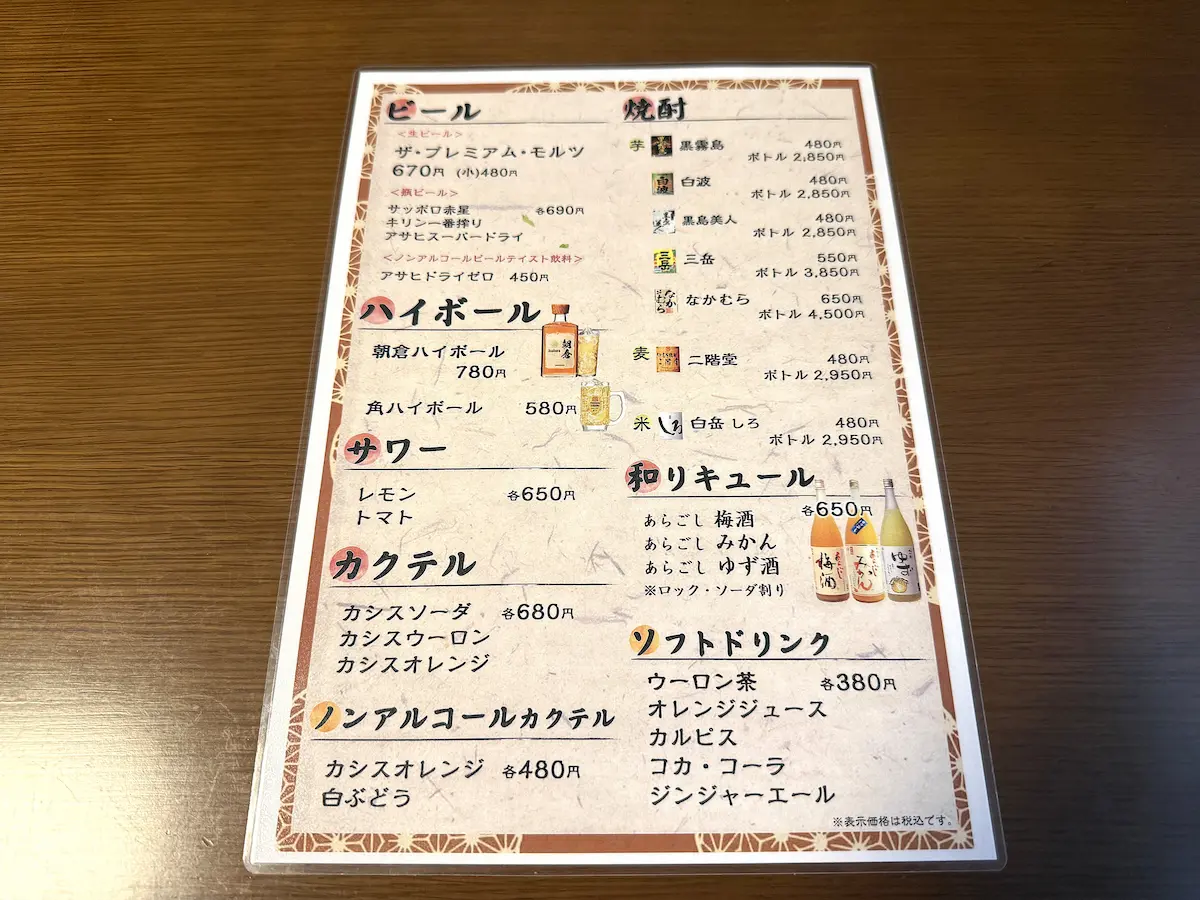 ビール
<生ビール>
ザ・プレミアム・モルツ
670円 (小)480円
<瓶ビール>
サッポロ赤星 各690円
キリン一番搾り
アサヒスーパードライ
<ノンアルコールビールテイスト飲料>
アサヒドライゼロ 450円
ハイボール
朝倉ハイボール
780円
角ハイボール 580円
サワー
レモン 各650円
トマト
カクテル
カシスソーダ 各680円
カシスウーロン
カシスオレンジ
ノンアルコールカクテル
カシスオレンジ 各480円
白ぶどう
焼酎
芋 黒霧島 480円
ボトル 2,850円
白波 480円
ボトル 2,850円
黒島美人 480円
ボトル 2,850円
三岳 550円
ボトル 3,850円
なかむら 650円
ボトル 4,500円
麦 二階堂 480円
ボトル 2,950円
米 しろ 白岳 しろ 480円
ボトル 2,950円
和リキュール
各650円
あらごし 梅酒
あらごし みかん
あらごし ゆず酒
※ロック・ソーダ割り
梅酒 みかん ゆず
ソフトドリンク
ウーロン茶 各380円
オレンジジュース
カルピス
コカ・コーラ
ジンジャーエール
※表示価格は税込です。